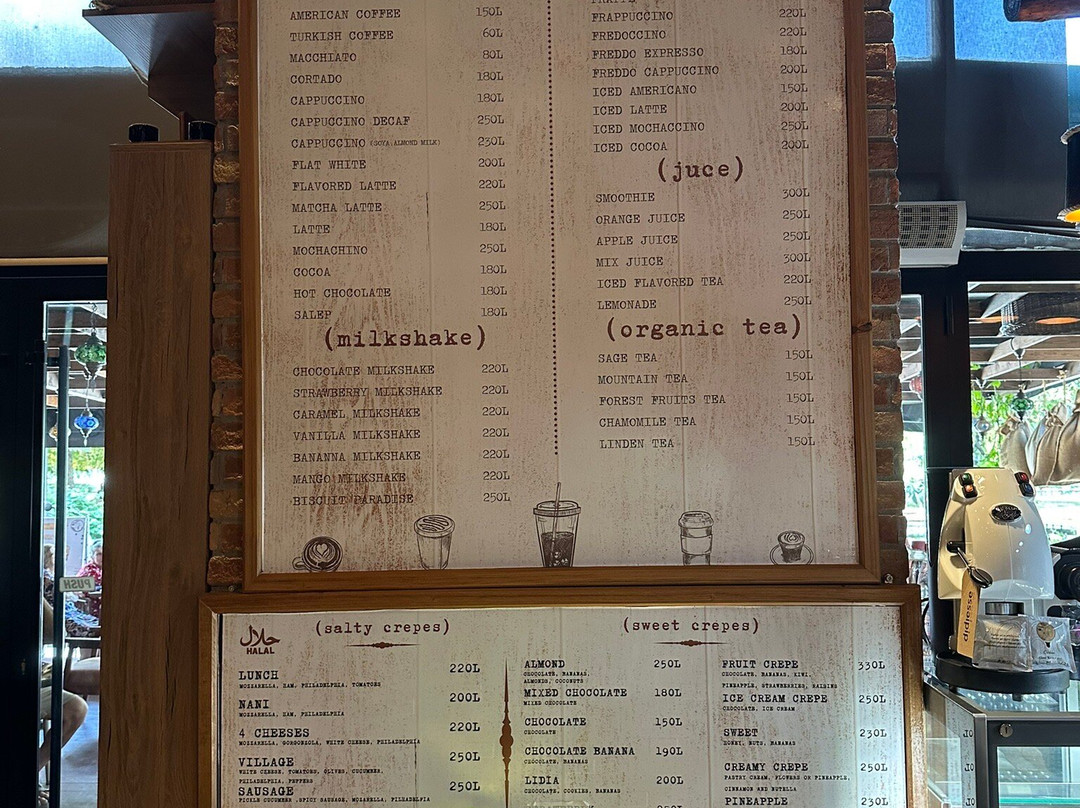 AMERICAN COFFEE 150L
TURKISH COFFEE 60L
MACCHIATO 80L
CORTADO 180L
CAPPUCCINO 180L
CAPPUCCINO DECAF 250L
CAPPUCCINO (SOYA, ALMOND MILK) 230L
FLAT WHITE 200L
FLAVORED LATTE 220L
MATCHA LATTE 250L
LATTE 180L
MOCHACHINO 250L
COCOA 180L
HOT CHOCOLATE 180L
SALEP 180L
(milkshake)
CHOCOLATE MILKSHAKE 220L
STRAWBERRY MILKSHAKE 220L
CARAMEL MILKSHAKE 220L
VANILLA MILKSHAKE 220L
BANANNA MILKSHAKE 220L
MANGO MILKSHAKE 220L
BISCUIT PARADISE 250L
FRAPPUCCINO 220L
FREDOCCINO 220L
FREDDO EXPRESSO 180L
FREDDO CAPPUCCINO 200L
ICED AMERICANO 150L
ICED LATTE 200L
ICED MOCHACCINO 250L
ICED COCOA 200L
(juce)
SMOOTHIE 300L
ORANGE JUICE 250L
APPLE JUICE 250L
MIX JUICE 300L
ICED FLAVORED TEA 220L
LEMONADE 250L
(organic tea)
SAGE TEA 150L
MOUNTAIN TEA 150L
FOREST FRUITS TEA 150L
CHAMOMILE TEA 150L
LINDEN TEA 150L
PUSH
didiesse
حلال
HALAL
(salty crepes)
LUNCH 220L
MOZZARELLA, HAM, PHILADELPHIA, TOMATOES
NANI 200L
MOZZARELLA, HAM, PHILADELPHIA
4 CHEESES 220L
MOZZARELLA, GORGONZOLA, WHITE CHEESE, PHILADELPHIA
VILLAGE 250L
WHITE CHEESE, TOMATOES, OLIVES, CUCUMBER,
PHILADELPHIA, PEPPERS
SAUSAGE 250L
PICKLE CUCUMBER, SPICY SAUSAGE, MOZARELLA, PHILADELFIA
(sweet crepes)
ALMOND 250L
CHOCOLATE, BANANAS,
ALMONDS, COCONUTS
MIXED CHOCOLATE 180L
MIXED CHOCOLATE
CHOCOLATE 150L
CHOCOLATE
CHOCOLATE BANANA 190L
CHOCOLATE, BANANAS
LIDIA 200L
CHOCOLATE, COOKIES, BANANAS
FRUIT CREPE 330L
CHOCOLATE, BANANAS, KIWI,
PINEAPPLE, STRAWBERRIES, RAISINS
ICE CREAM CREPE 250L
CHOCOLATE, ICE CREAM
SWEET 230L
HONEY, NUTS, BANANAS
CREAMY CREPE 250L
PASTRY CREAM, FLOWERS OR PINEAPPLE,
CINNAMON AND NUTELLA
PINEAPPLE 230L